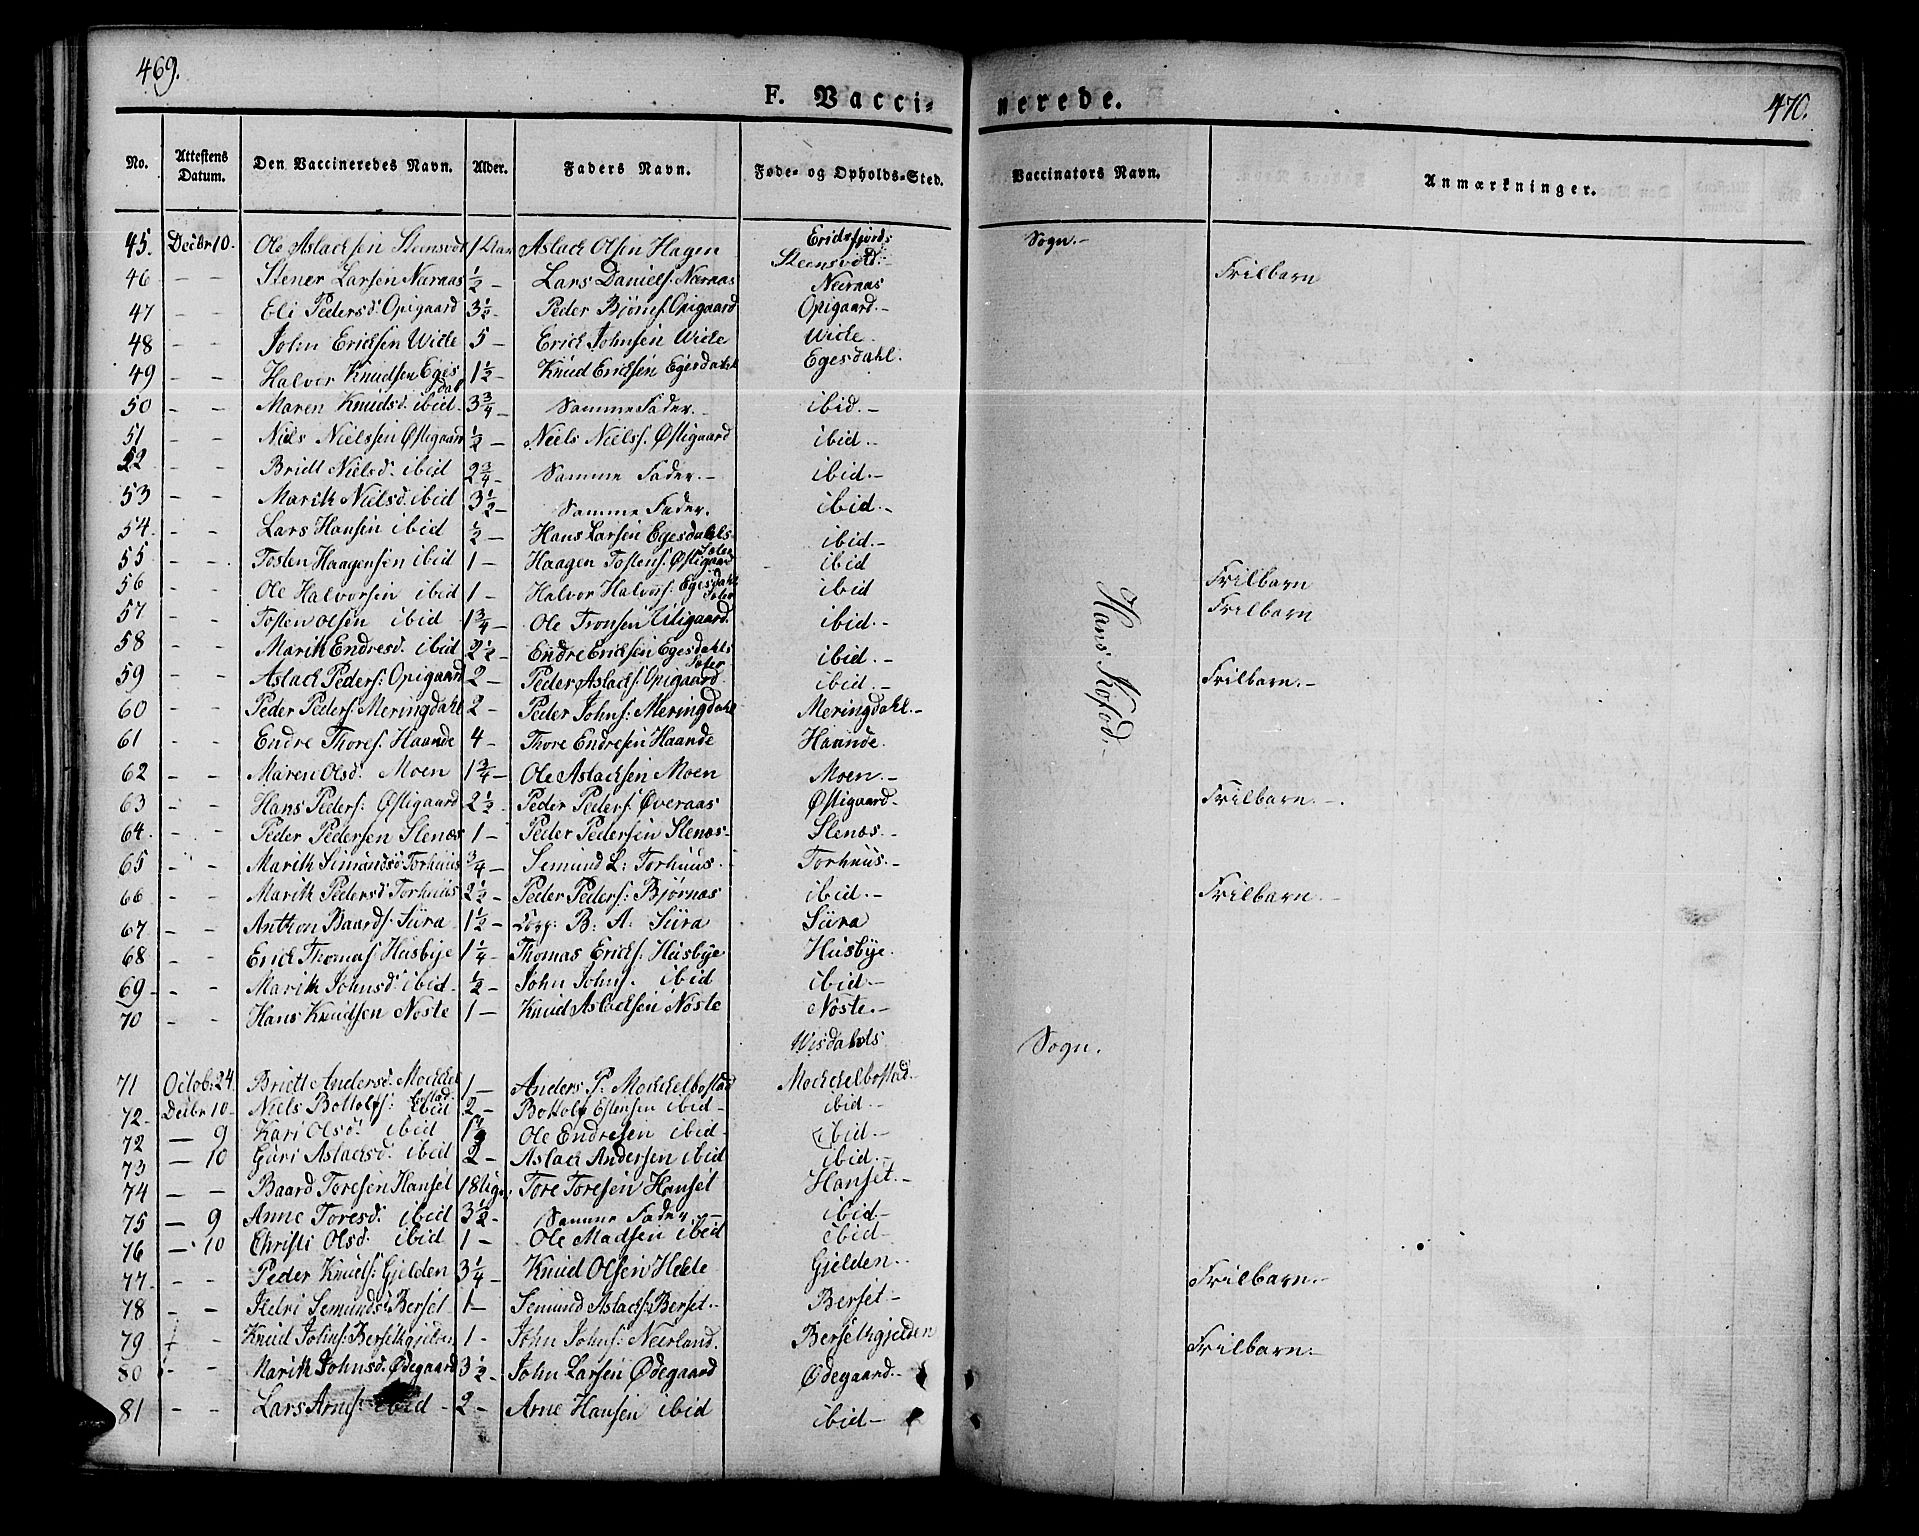 469.
F. Vacci-
nerede.
470.
No. Attestens Datum. Den Vaccineredes Navn. Alder. Faders Navn. Føde- og Opholds-Sted. Vaccinators Navn. Anmærkninger.
Eridsfjords Sogn.-
45. Decbr 10. Ole Aslachsen Steensvold 1 Aar Aslack Olsen Hagen Steensvold.-
46 - - Stener Larsen Nærnaas ½ - Lars Daniels: Nærnaas Neernas Frilbarn
47 - - Eli Pedersd: Opigaard 3½ - Peder Bjørns: Opigaard Opigaard.-
48 - - John Ericksen Wide 5 - Erick Johnsen Wide Wide.
49 - - Halvor Knudsen Egesdal 1½ - Knud Ericksen Egesdahl Egesdahl.
50 - - Maren Knudsd: ibid. 3¾ - Samme Fader.- ibid.-
51 - - Niels Nielssen Østigaard ½ - Neels Niels: Østigaard ibid.-
52 - - Bridt Nielsd: ibid 2¾ - Samme Fader.- ibid.-
53 - - Marith Nielsd: ibid 3½ - Samme Fader. ibid.-
54. - - Lars Hansen ibid ½ - Hans Larsen Egesdahls- ibid.-
55 - - Tosten Haagensen ibid 1 - Haagen Tostens: Østigaard ibid
56 - - Ole Halvorsen ibid 1 - Halvor Halvors: Egesdahl ibid Frilbarn
57. - - Tosten Olsen ibid 1¾ - Ole Tronsen ibid.- Frilbarn
58 - - Marith Endresd: ibid 2½ - Endre Ericksen Egesdahls ibid.-
59 - - Aslack Peders: Opigaard 2 - Peder Aslacks: Opigaard. ibid.- Frilbarn.-
60 - - Peder Peders: Meringdahl 2 - Peder Johns: Meringdahl Meringdahl.-
61 - - Endre Thores: Haande 4 - Thore Endresen Haande Haande.
62 - - Maren Olsd: Moen 1¾ - Ole Aslachsen Moen Moen.-
63 - - Hans Peders: Østigaard 2½ - Peder Peders: Øveraas Østigaard.- Frilbarn.-
64. - - Peder Pedersen Slenæs 1 - Peder Pedersen Slenæs- Slenæs.-
65 - - Marith Simundsd: Torhuus ¾ - Semund L: Torhuus. Torhuus.-
66 - - Marith Pedersd: Torhuus 2½ - Peder Peders: Bjørnas ibid.- Frilbarn.-
67 - - Anthon Baards: Süra 1½ - B: A: Süra Süra
68 - - Erick Thomas: Husbye 1¼ - Thomas Ericks: Husbye Husbye.
69 - - Marith Johnsd: ibid.- ½ - John Johns. ibid ibid.-
70 - - Hans Knudsen Nøste 1 - Knud Aslacksen Nøste Nøste.-
Hans Kosod.-
Wisdahls Sogn.
71 Octob: 24. Bridt Andersd: Mockelbostad 1 - Anders P: Mockelbostad Mockelbostad.-
72. Decbr 10 - Niels Bottolfs: ibid 2 - Bottolf Estensen ibid- ibid.-
72 - 9 Kari Olsd: ibid Ole Endresen ibid- ibid.-
73 - 10 Guri Aslacksd: ibid 2 - Aslack Andersen ibid ibid.-
74 - - Baard Toresen Hanset 18 Uger: Tore Toresen Hanset Hanset.-
75 - 9 Anne Toresd: ibid 3½ - Samme Fader.- ibid.-
76 - 10 Christi Olsd: ibid 1 - Ole Madsen ibid ibid-
77. - - Peder Knuds: Gjelden 3¼ - Knud Olsen Helde Gjelden.. Frilbarn.-
78 - - Semundsd: Berset 1 - Semund Aslacks: Berset.- Berset.-
79 - Knud Johns: Bersethgjelden 1 - John Johns: Neerland. Bersethgjelden Frilbarn.-
80 - - Marith Johnsd: Ødegaard 3½ - John Larsen Ødegaard Ødegaard.-
81 - - Lars Arnes: ibid - 2 - Arne Hansen ibid ibid.-